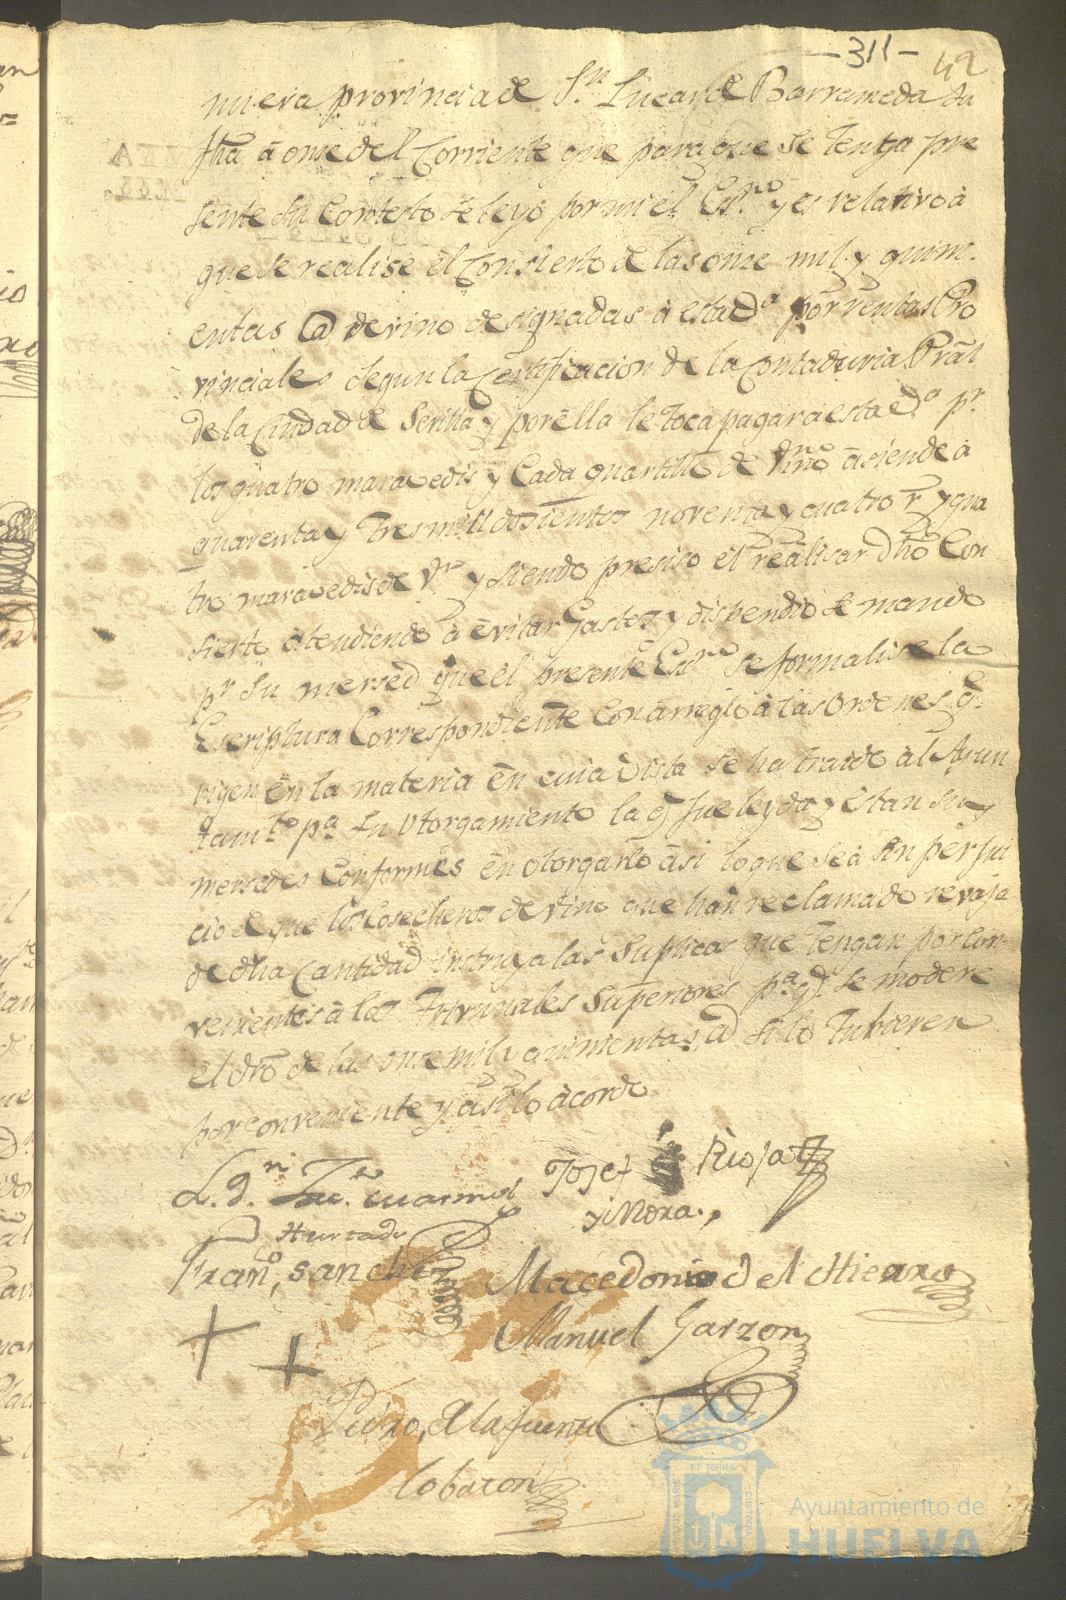 -311- 42
nueva provincia de Sn. Lucar de Barrameda su
fha á onse del Corriente que para que se tenga pre
sente su Contesto se leyó por mi el Essno. y es relativo á
que se realise el Consierto de las onse mil y quini-
entas @ de vino designadas á esta Va. por rentas Pro
vinciales segun la Certificacion de la Contaduria Pral
de la Ciudad de Sevilla y por ella le toca pagar a esta Va. pr.
los quatro maravedis y Cada quartillo de vino asiende á
quarenta y tres mill dosientos noventa y cuatro rs. y qua
tro maravedis de Vn. y siendo presiso el realisar dho Con
sierto atendiendo á evitar Gastos y dispendio se mando
pr. su mersed que el presente Essno. se formalise la
Escriptura Correspondiente Con arreglo á las Ordenes q.
rigen en la materia en cuia vista se ha traido al Ayun
tamto. pa. su Otorgamiento la q fue leyda y estan sus
mersedes Conformes en otorgarlo asi lo que sea sin perjui
cio de que los Cosecheros de vino que han reclamado revaja
de dha Cantidad instruya las Suplicas que tengan por Con
venientes á los Tribunales Superiores pa. q. se modere
el dro de las onse mil y quinientas @ si lo tubieren
por conveniente y asi lo acordo
L. Dn.
Josef Rioja
y Mora.
Hurtado
Frano. Sanchez
Macedonio del Hierro
Manuel Garzon
+ +
Pedro de la fuente
Cobacon
Ayuntamiento de
HUELVA